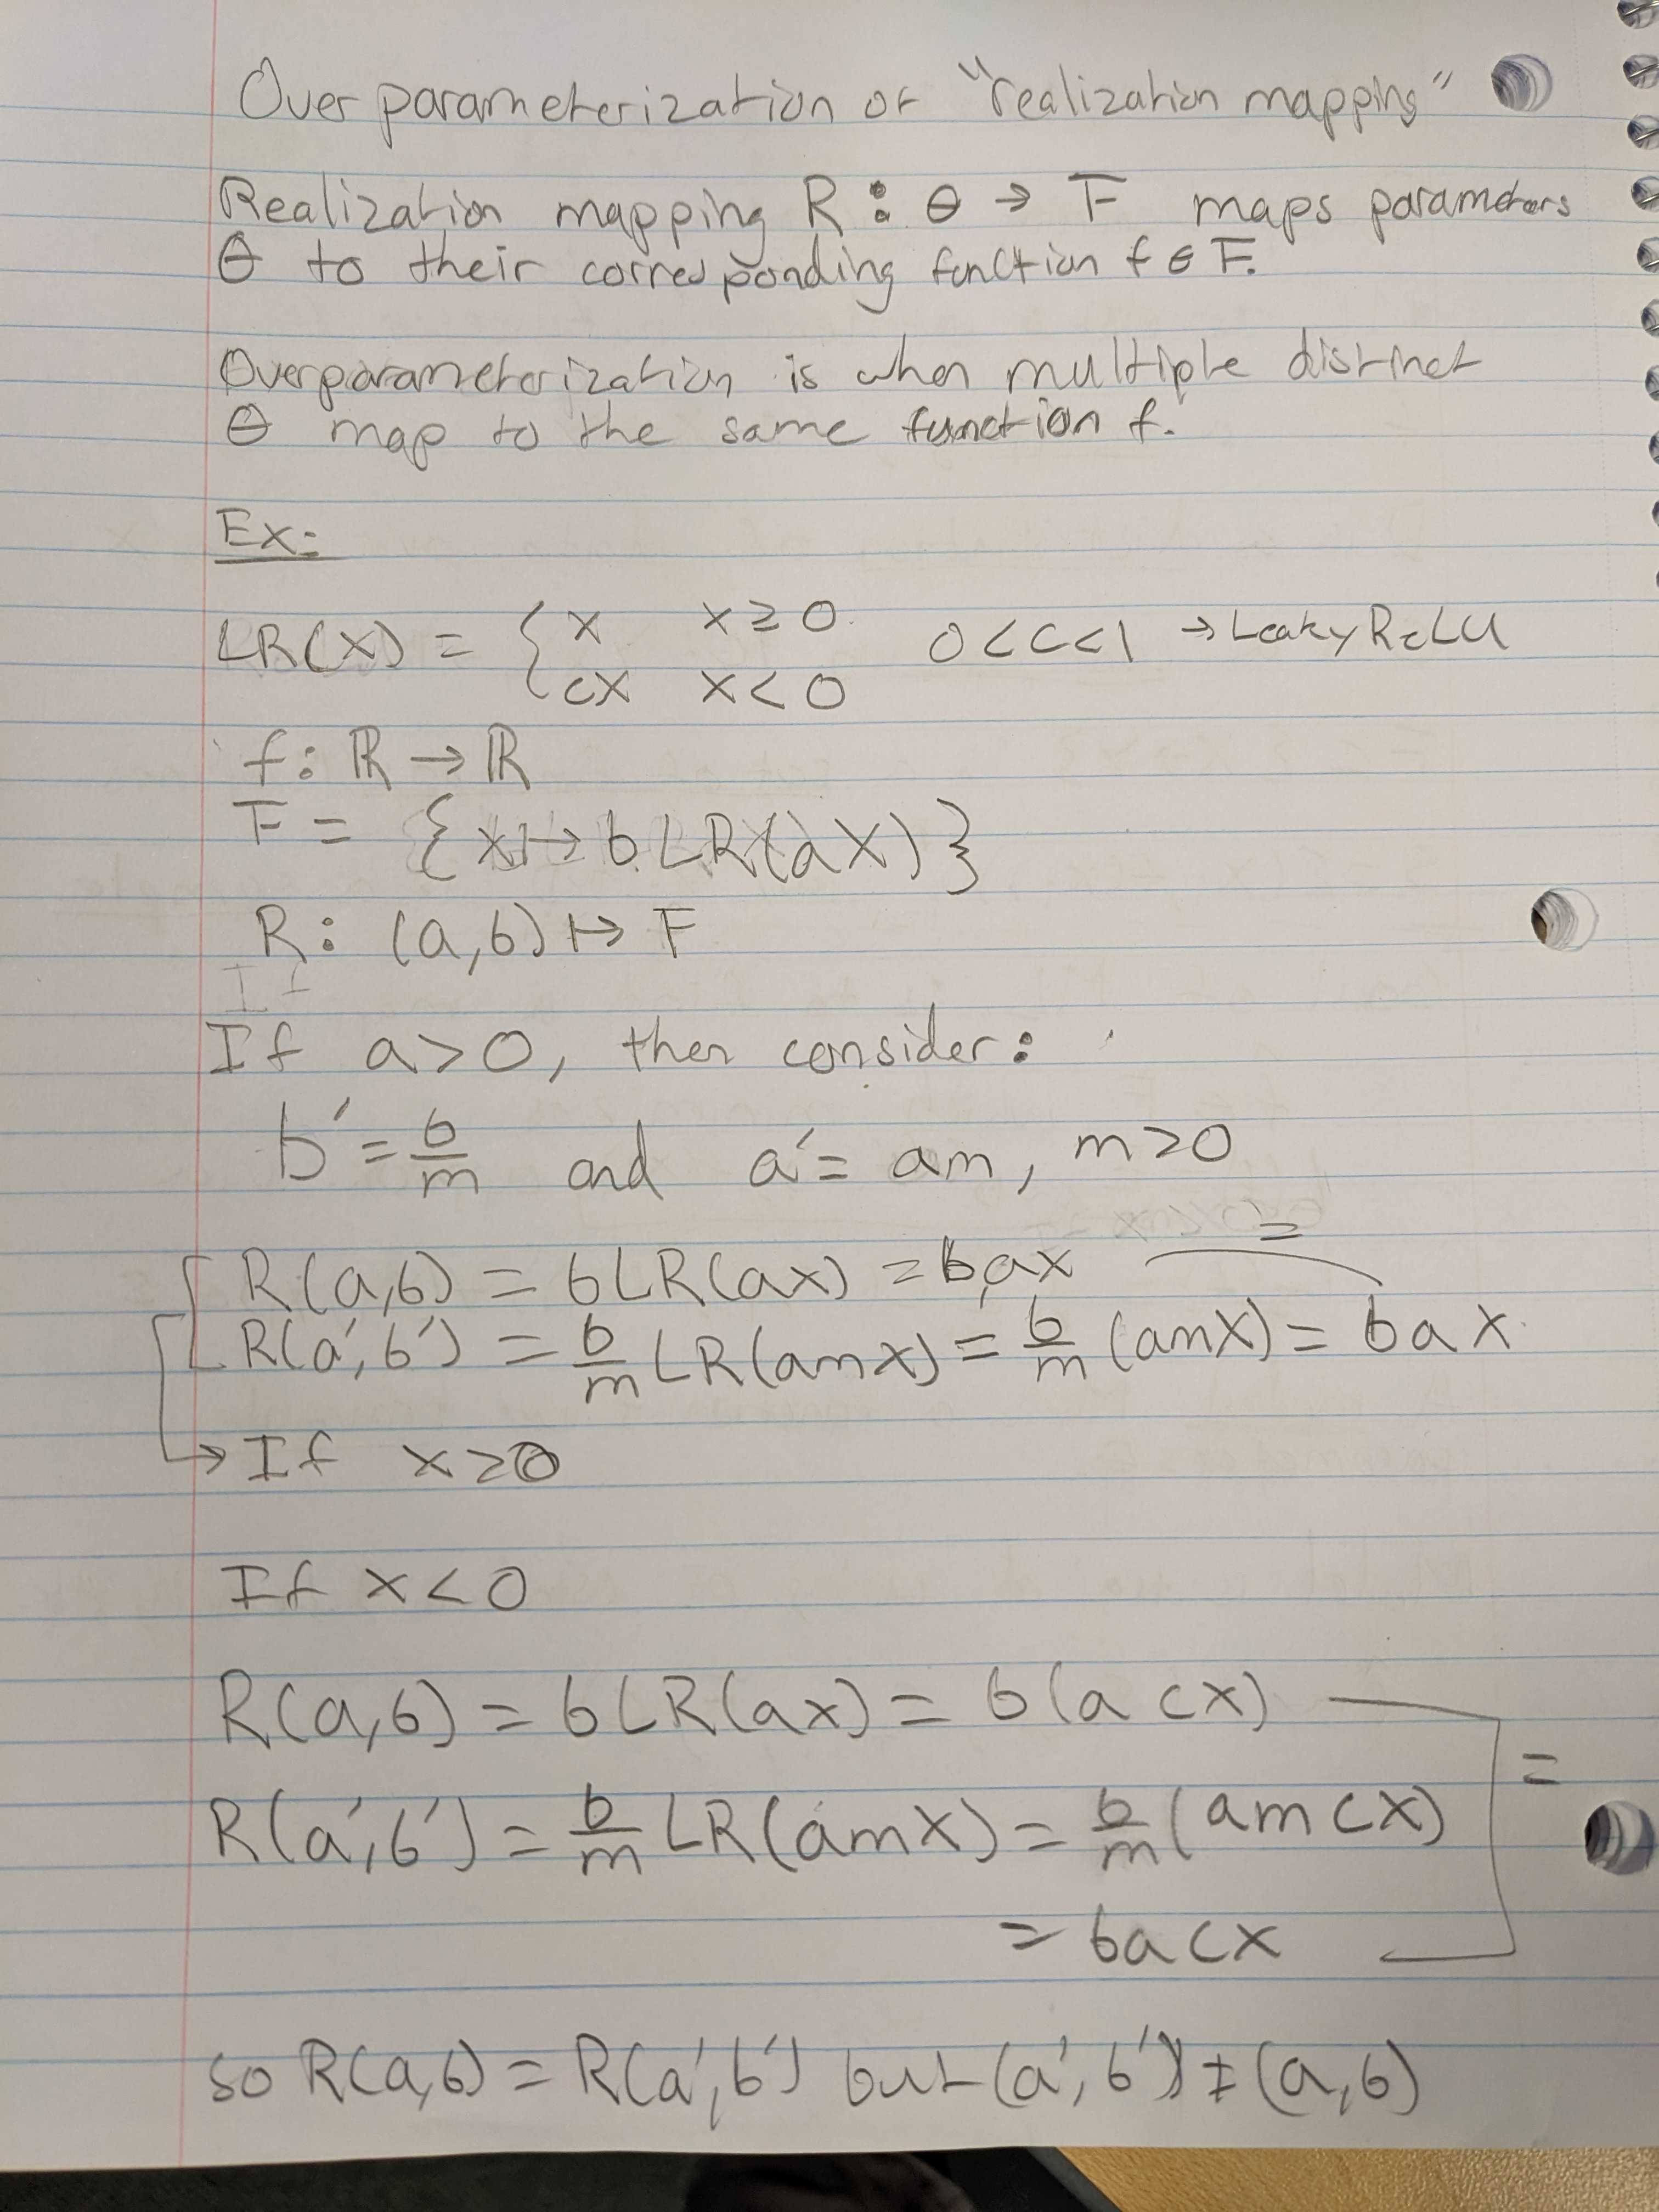 Over parameterization or "realization mapping"
Realization mapping R : θ → F maps parameters
θ to their corresponding function f ∈ F.
Overparameterization is when multiple distinct
θ map to the same function f.
Ex:
LR(x) = { x x ≥ 0 0 < c < 1 → Leaky ReLU
cx x < 0
f: ℝ → ℝ
F = { x ↦ b LR(ax) }
R: (a,b) ↦ F
If
If a > 0, then consider:
b' = b/m and a' = am, m > 0
R(a,b) = b LR(ax) = bax =
R(a',b') = b/m LR(amx) = b/m (amx) = bax
→ If x ≥ 0
If x < 0
R(a,b) = b LR(ax) = b(acx)
=
R(a',b') = b/m LR(amx) = b/m (amcx)
= bacx
so R(a,b) = R(a',b') but (a',b') ≠ (a,b)